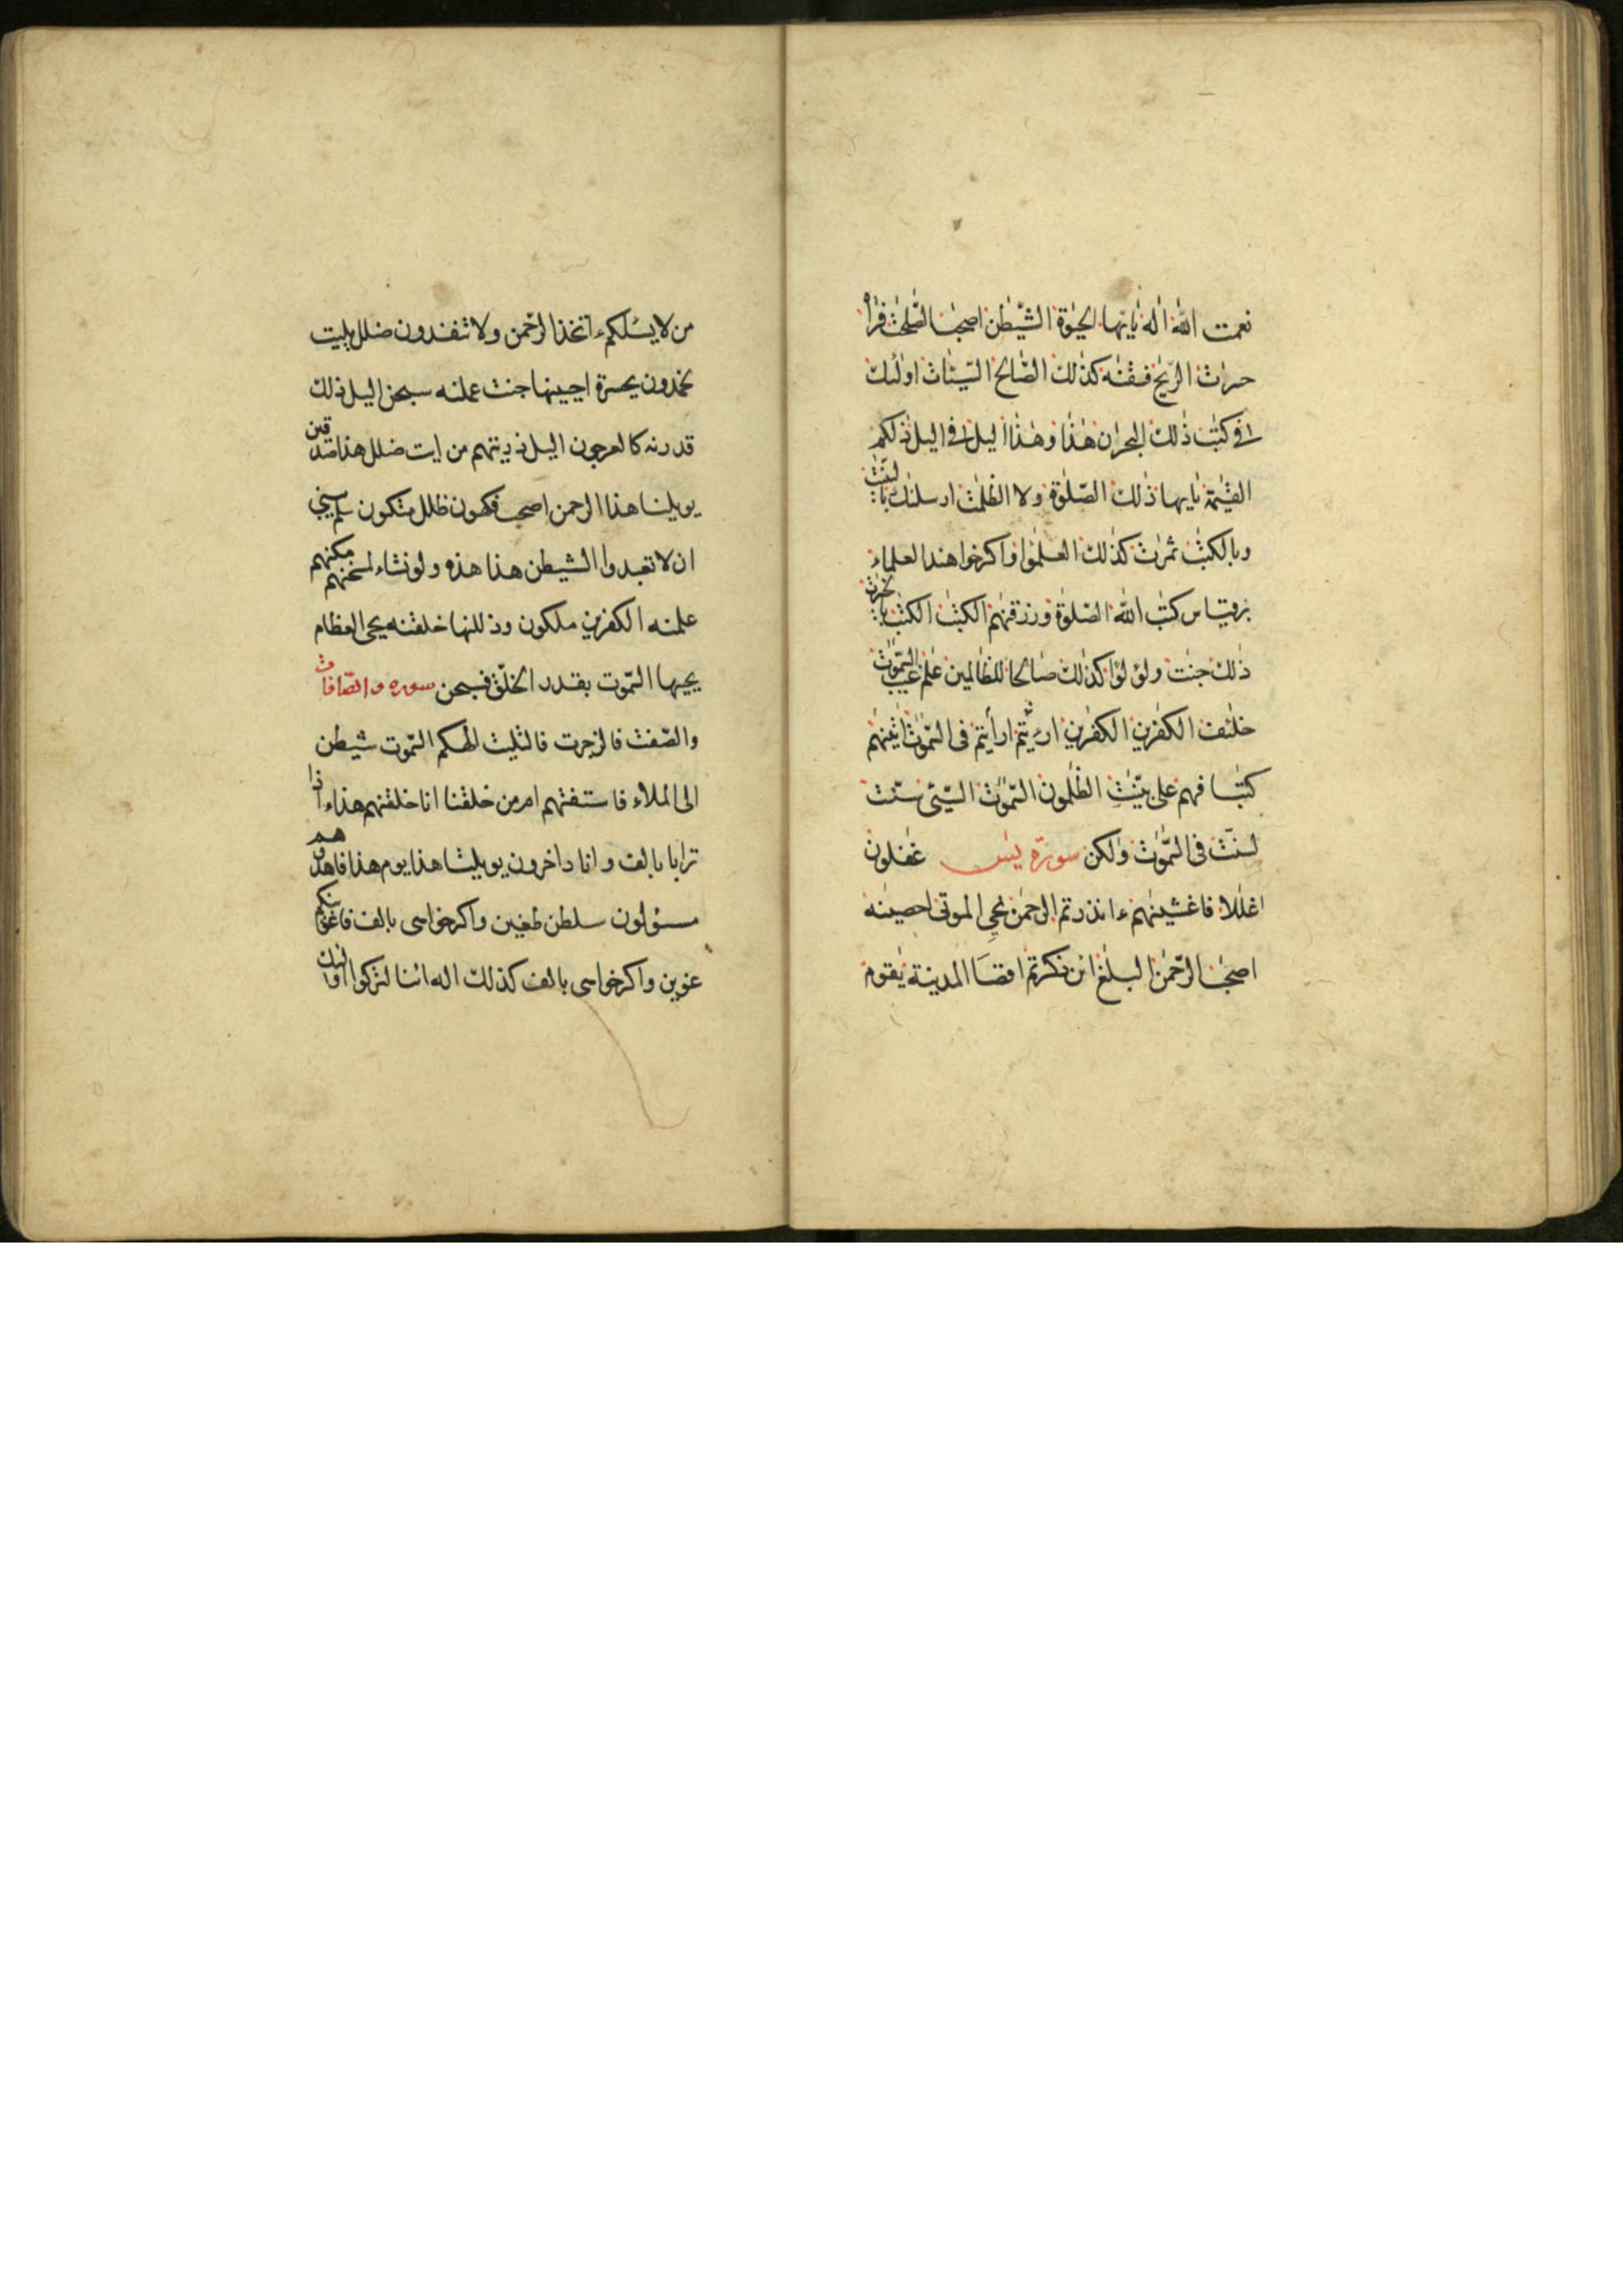 نعمت الله اله يايها الحيوة الشيطن اصحب الصلحت فراه
حسرات الريح فسقنه كذلك الصالح السيئات اولئك
في كتب ذلك البحران هذا وهذا اليل في اليل ذلكم
القيمة يايها ذلك الصلوة ولا الظلمت ارسلنك بالبينت
وبالكتب ثمرت كذلك العلمؤا واكرخواهند العلماء
برقياس كتب الله الصلوة ورزقنهم الكتب الكتب بالخيرت
ذلك جنت ولؤلؤا كذلك صالحا للظالمين علم غيب السموت
خلئف الكفرين الكفرين اريتم ارأيتم في السموت اتينهم
كتبا فهم على بينت الظلمون السموت السيئ سنت
لسنت في السموت ولكن سورة يس غفلون
اغللا فاغشينهم ءانذرتم الرحمن نحي الموتى احصينه
اصحب الرحمن البلغ ائن ذكرتم اقصا المدينة يقوم
من لا يسئلكم ءاتخذ الرحمن ولا تنقذون ضلل يليت
خمدون يحسرة احيينها جنت عملته سبحن اليل ذلك
قدرنه كالعرجون اليل ذريتهم من ايت ضلل هذا صدقين
يويلنا هذا الرحمن اصحب فكهون ظلل متكون سلم يبني
ان لا تعبدوا الشيطن هذا هذه ولو نشاء لمسخنهم مكنهم
علمنه الكفرين ملكون وذللنها خلقنه يحي العظام
يحيها السموت بقدر الخلق فسبحن سوره والصافات
والصفت فالزجرت فالتليت الهكم السموت شيطن
الى الملاء فاستفتهم ام من خلقنا انا خلقنهم هذا ءاذا
ترابا بالف وانا داخرون يويلنا هذا يوم هذا فاهدوهم
مسئولون سلطن طغين واكرخواسى بالف فاغوينكم
غوين واكرخواسى بالف كذلك اله ائنا لتركوا اولئك